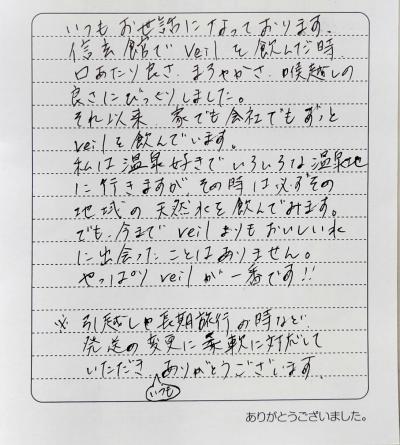 いつもお世話になっております。
信玄館でveilを飲んだ時
口あたり良さ、まろやかさ、喉越しの
良さにびっくりしました。
それ以来 家でも会社でもずっと
veilを飲んでいます。
私は温泉好きでいろいろな温泉地
に行きますが その時は必ずその
地域の天然水を飲んでみます。
でも、今までveilよりもおいしい水
に出会ったことはありません。
やっぱりveilが一番です!!
※ 引越しや長期旅行の時など
発送の変更に柔軟に対応して
いただき いつも ありがとうございます。
ありがとうございました。